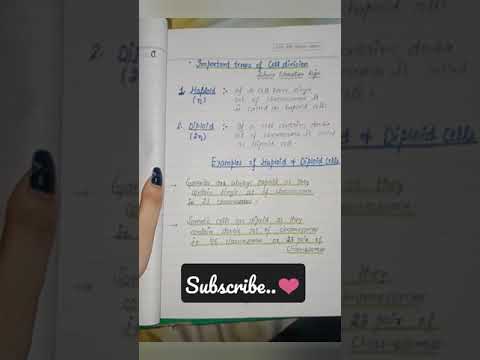 Important terms of Cell division
1. Haploid :- If a cell have single
(n) set of chromosomes it
is called as haploid cell.
2. Diploid :- If a cell contain double
(2n) set of chromosomes is called
as diploid cell.
Examples of Haploid & Diploid Cells
→ Gametes are always haploid as they
contain single set of chromosome
is 23 chromosomes.
→ Somatic cells are diploid as they
contain double set of chromosomes
i.e 46 chromosomes or 23 pair of
chromosomes
Subscribe..